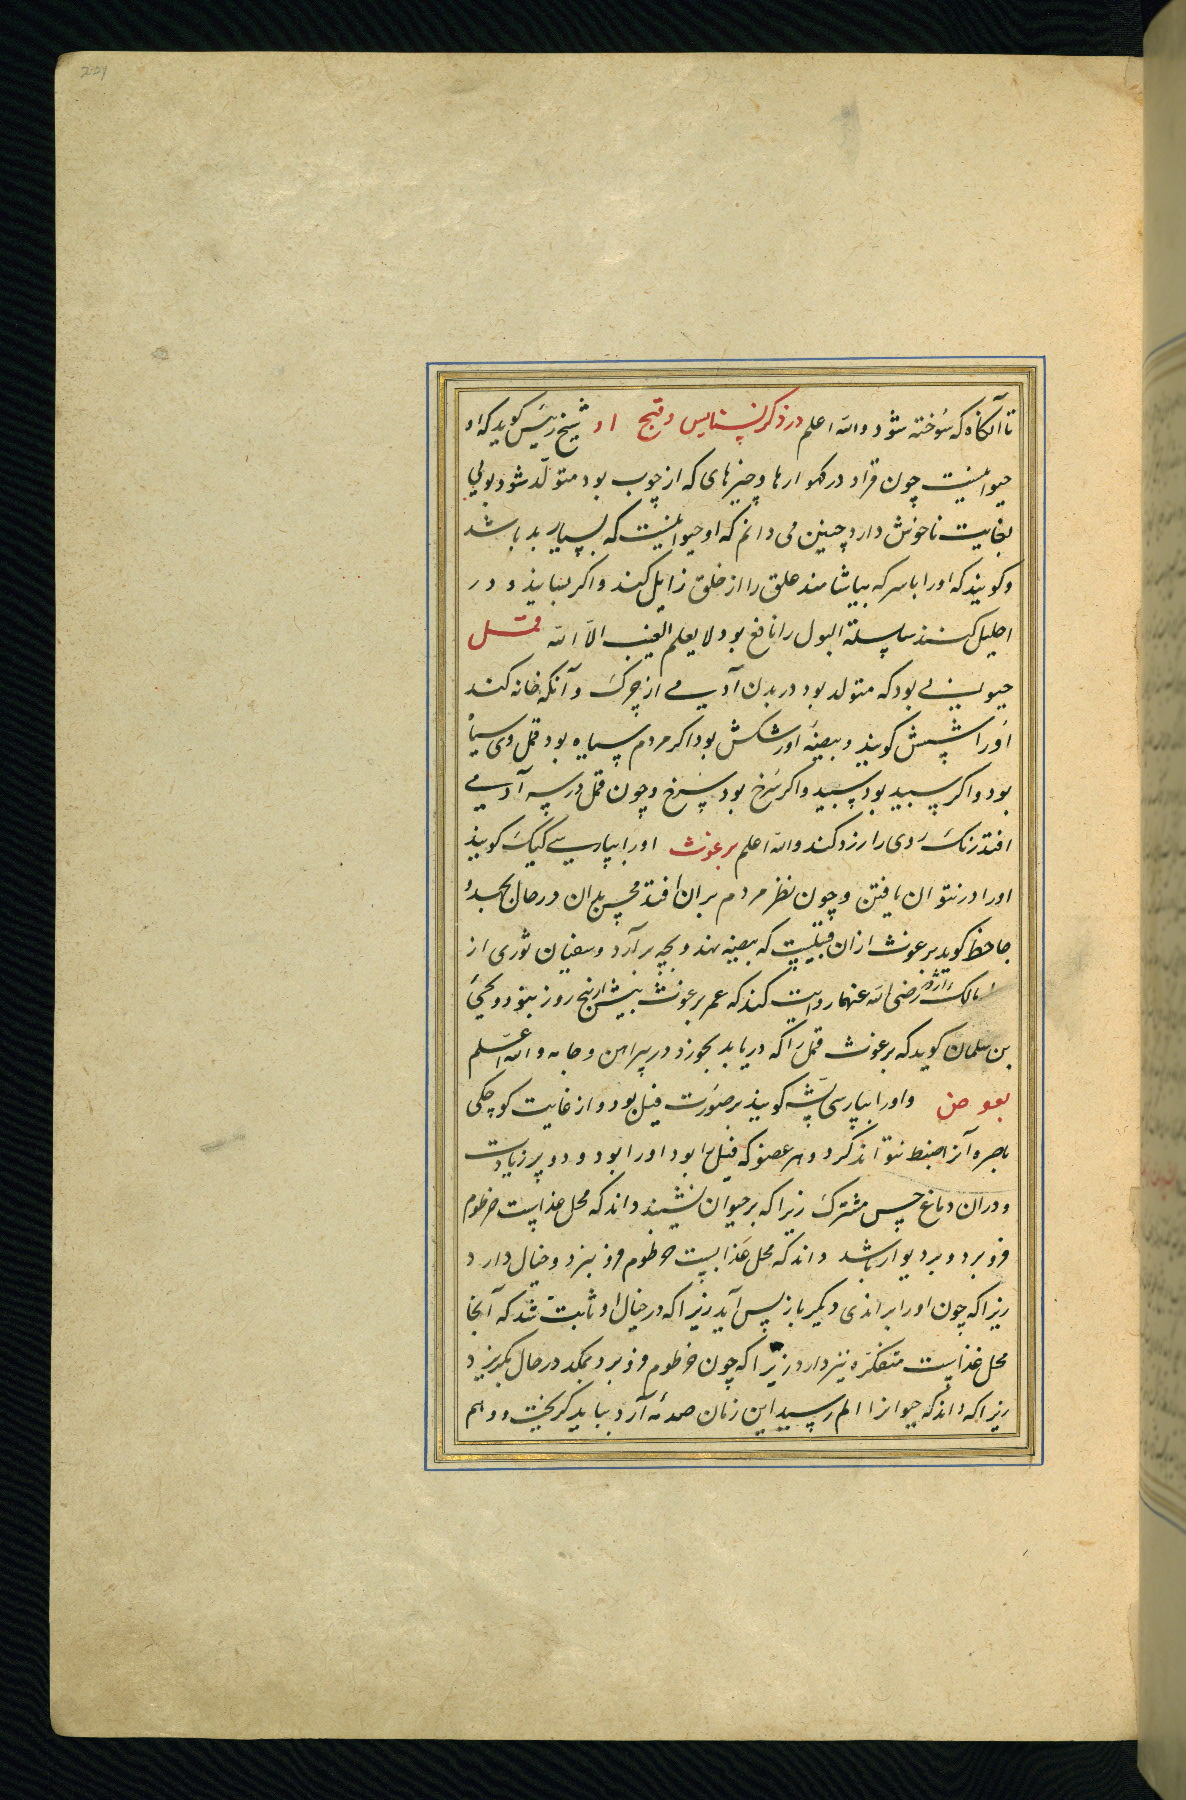 تا آنگاه که سُوخته شود والله اعلم در ذکر فسافس و قبح او شیخ رئیس کوید که او
حیوانیست چون قراد در کهوارها و چیزهای که از چوب بود متولّد شود بویی
بغایت ناخوش دارد چنین می دانم که او حیوانیست که بسیار بد باشد
و کویند که اورا با سرکه بیاشامند علق را از حلق زایل کند و اکر بسایند و در
احلیل کنند سلسلة البول را نافع بود لا یعلم الغیب الا الله قمل
حیوانی بود که متولد بود در بدن آدمی از چرک و آنکه خانه کند
اورا شپش کویند و بیضهٔ اورا رشک بود اکر مردم سیاه بود قمل وی سیاه
بود و اکر سپید بود سپید و اکر سُرخ بود سُرخ و چون قمل در سر آدمی
افتد رنک روی را زرد کند والله اعلم برغوث اورا بپارسی کیک کویند
اورا در نتوان یافتن و چون نظر مردم بر ان افتد در حال بجهد و
جاحظ کوید برغوث از ان قبیلست که بیضه نهد و بچه بر آرد و سفیان ثوری از
مالک رضی الله عنهما روایت کند که عمر برغوث بیش از پنج روز نبود و یحیی
بن سلمان کوید که برغوث قمل را که دریابد بخورد در پیراهن و جامه والله اعلم
بعوض و اورا بپارسی پشّه کویند بر صورت فیل بود و از غایت کوچکی
باصره آنرا ضبط نتواند کرد و هر عضو که فیل را بود اورا بود و دو پر زیادت
و در ان دماغ حس مشترک زیرا که بر حیوان نشیند داند که محل غذاست خرطوم
فرو برد و بر دیوار باشد داند که محل غذا نیست خرطوم فرو نبرد و خیال دارد
زیرا که چون اورا برانذی دیکر باز پس آید زیرا که در خیال او ثابت شد که آنجا
محل غذاست متفکره نیز دارد زیرا که چون خرطوم فرو برد بمکد در حال بکریزد
زیرا که داند که حیوانرا الم رسید این زمان صدمه آرد بباید کریخت و وهم